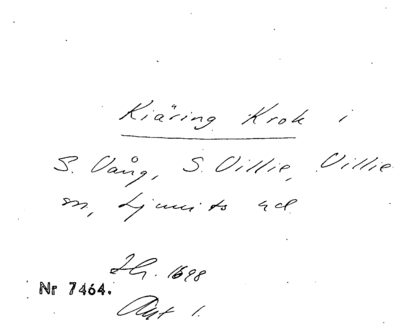 Kiäring Krok i
S. Vång, S. Villie, Villie
sn, Ljunits hd
Hr. 1698
Nr 7464.
Akt 1.